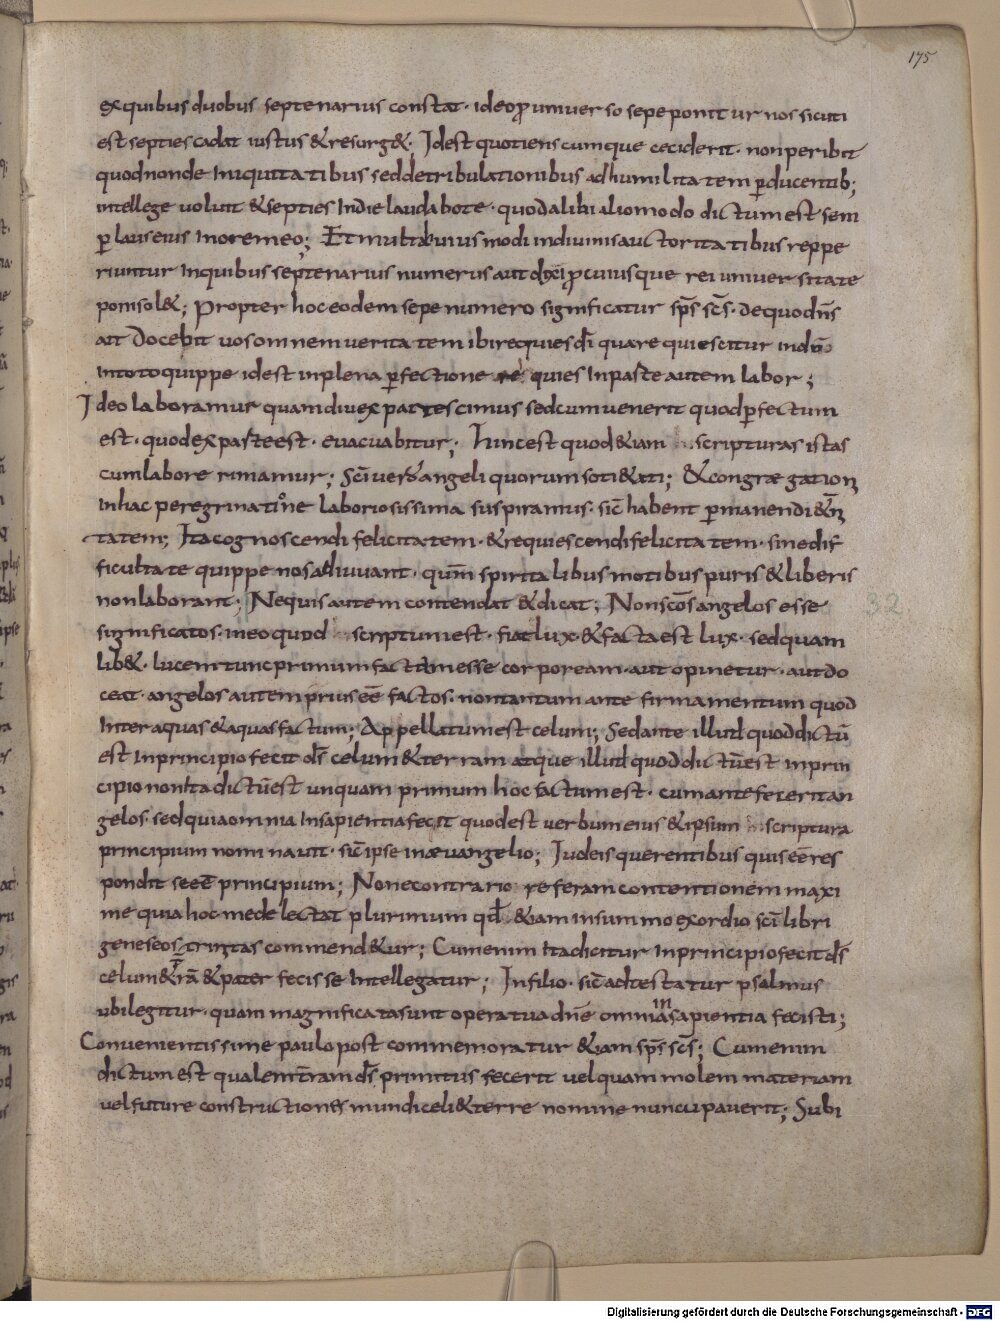 175
exquibus duobus septenarius constat · ideoq; universo sepe ponitur nos sicuti
est septies cadat iustus & resurg& · Idest quotienscumque ceciderit · non peribit
quod non de iniquitatibus sed de tribulationibus ad humilitatem p̄ducentib;
intellege voluit & septies in die laudabo te · quod alibi alio modo dictum est sem
p̄ laus eius in ore meo; Et multa huiusmodi in divinis auctoritatibus reppe
riuntur in quibus septenarius numerus aut dixi p cuiusque rei universitate
poni sol&; Propter hoc eodem sepe numero significatur sp̄s sc̄s · de quo dn̄s
ait Docebit vos omnem veritatem ibi requies dī quare quiescitur in dō
in toto quippe idest in plena p̄fectione requies In parte autem labor;
Ideo laboramur quamdiu ex parte scimus sed cum venerit quod p̄fectum
est · quod ex parte est · evacuabitur; hinc est quod &iam scripturas istas
cum labore rimamur; Sc̄i vero angeli quorum soti&ati; & congrægation
in hac peregrinatione laboriosissima suspiramus · sic̄ habent p̄manendi &n̄
tatem; Ita cognoscendi felicitatem · & requiescendi felicitatem · sine dif
ficultate quippe nos adiuvant · qum̄ spiritalibus motibus puris & liberis
non laborant; Ne quis autem contendat & dicat; Non sc̄os angelos esse
32
significatos · in eo quod scriptum est · fiat lux · & facta est lux · sed quam
lib& · lucem tunc primum factam esse corpoream · aut opinetur · aut do
ceat · angelos autem prius eē factos · non tantum ante firmamentum quod
Inter aquas & aquas factum; Appellatum est celum; Sed ante illud quod dictū
est In principio fecit dS̄ celum & terram atque illud quod dictū est in prin
cipio non ita dictū est unquam primum hoc factum est · cum ante fecerit an
gelos · sed quia omnia In sapientia fecit quod est verbum eius & ipsum scriptura
principium nominavit · sic̄ ipse in ævangelio; Iudeis querentibus quis eēres
pondit se eē principium; Non e contrario referam contentionem maxi
me quia hoc me delectat plurimum qd̄ &iam in summo exordio sc̄i libri
geneseos · trinitas commend&ur; Cum enim Ita dicitur In principio fecit dS̄
celum & t̄rā & pater fecisse Intellegatur; In filio · sic̄ adtestatur psalmus
ubi legitur · quam magnificata sunt opera tua dn̄e omnia in sapientia fecisti;
Convenientissime paulo post commemoratur &iam sp̄s sc̄s; Cum enim
dictum est qualem t̄ram dS̄ primitus fecerit vel quam molem materiam
vel future constructionis mundi celi & terre nomine nuncupaverit; Subi
Digitalisierung gefördert durch die Deutsche Forschungsgemeinschaft - DFG